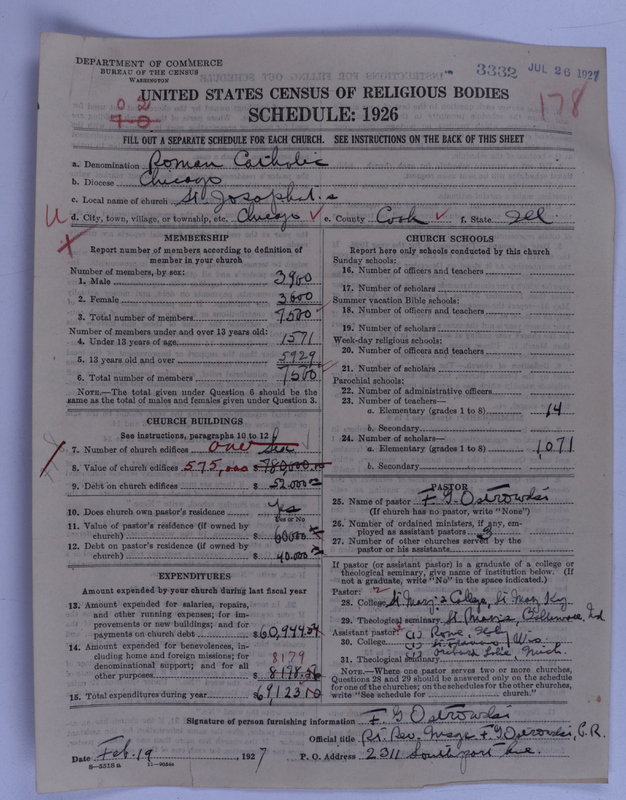 DEPARTMENT OF COMMERCE
BUREAU OF THE CENSUS
WASHINGTON
3332 JUL 26 1927
UNITED STATES CENSUS OF RELIGIOUS BODIES
0 2
7-0
SCHEDULE: 1926
178
FILL OUT A SEPARATE SCHEDULE FOR EACH CHURCH. SEE INSTRUCTIONS ON THE BACK OF THIS SHEET
a. Denomination Roman Catholic
b. Diocese Chicago
c. Local name of church St. Josaphat's
d. City, town, village, or township, etc. Chicago e. County Cook f. State Ill.
MEMBERSHIP
Report number of members according to definition of
member in your church
Number of members, by sex:
1. Male 3900
2. Female 3600
3. Total number of members 7500
Number of members under and over 13 years old:
4. Under 13 years of age 1571
5. 13 years old and over 5929
6. Total number of members 7500
NOTE.—The total given under Question 6 should be the
same as the total of males and females given under Question 3.
CHURCH BUILDINGS
See instructions, paragraphs 10 to 12
7. Number of church edifices one Six
8. Value of church edifices 575,000 $780,000.00
9. Debt on church edifices $52.000 00
10. Does church own pastor's residence? Yes
Yes or No
11. Value of pastor's residence (if owned by
church) $60000 00
12. Debt on pastor's residence (if owned by
church) $40.000 00
EXPENDITURES
Amount expended by your church during last fiscal year
13. Amount expended for salaries, repairs,
and other running expense; for im-
provements or new buildings; and for
payments on church debt $60,944.54
14. Amount expended for benevolences, in-
cluding home and foreign missions; for
denominational support; and for all
other purposes 8179 $8178.56
15. Total expenditures during year $69123.10
CHURCH SCHOOLS
Report here only schools conducted by this church
Sunday schools:
16. Number of officers and teachers
17. Number of scholars
Summer vacation Bible schools:
18. Number of officers and teachers
19. Number of scholars
Week-day religious schools:
20. Number of officers and teachers
21. Number of scholars
Parochial schools:
22. Number of administrative officers
23. Number of teachers—
a. Elementary (grades 1 to 8) 14
b. Secondary
24. Number of scholars—
a. Elementary (grades 1 to 8) 1071
b. Secondary
PASTOR
25. Name of pastor F. G. Ostrowski
(If church has no pastor, write "None")
26. Number of ordained ministers, if any, em-
ployed as assistant pastors 3
27. Number of other churches served by the
pastor or his assistants
If pastor (or assistant pastor) is a graduate of a college or
theological seminary, give name of institution below. (If
not a graduate, write "No" in the space indicated.)
Pastor:
28. College St Mary's College, St Mary Ky
29. Theological seminary St. Mary's Baltimore, Md
Assistant pastor:
30. College (1) Rome
(2) St Francis, Wis.
(3) Orchard Lake Mich.
31. Theological seminary
NOTE.—Where one pastor serves two or more churches,
Questions 28 and 29 should be answered only on the schedule
for one of the churches; on the schedules for the other churches,
write "See schedule for church."
Signature of person furnishing information F. G Ostrowski
Official title Rt. Rev. Msgr F. G Ostrowski, C. R.
Date Feb. 19, 1927 P. O. Address 2311 Southport Ave.
8-5518a